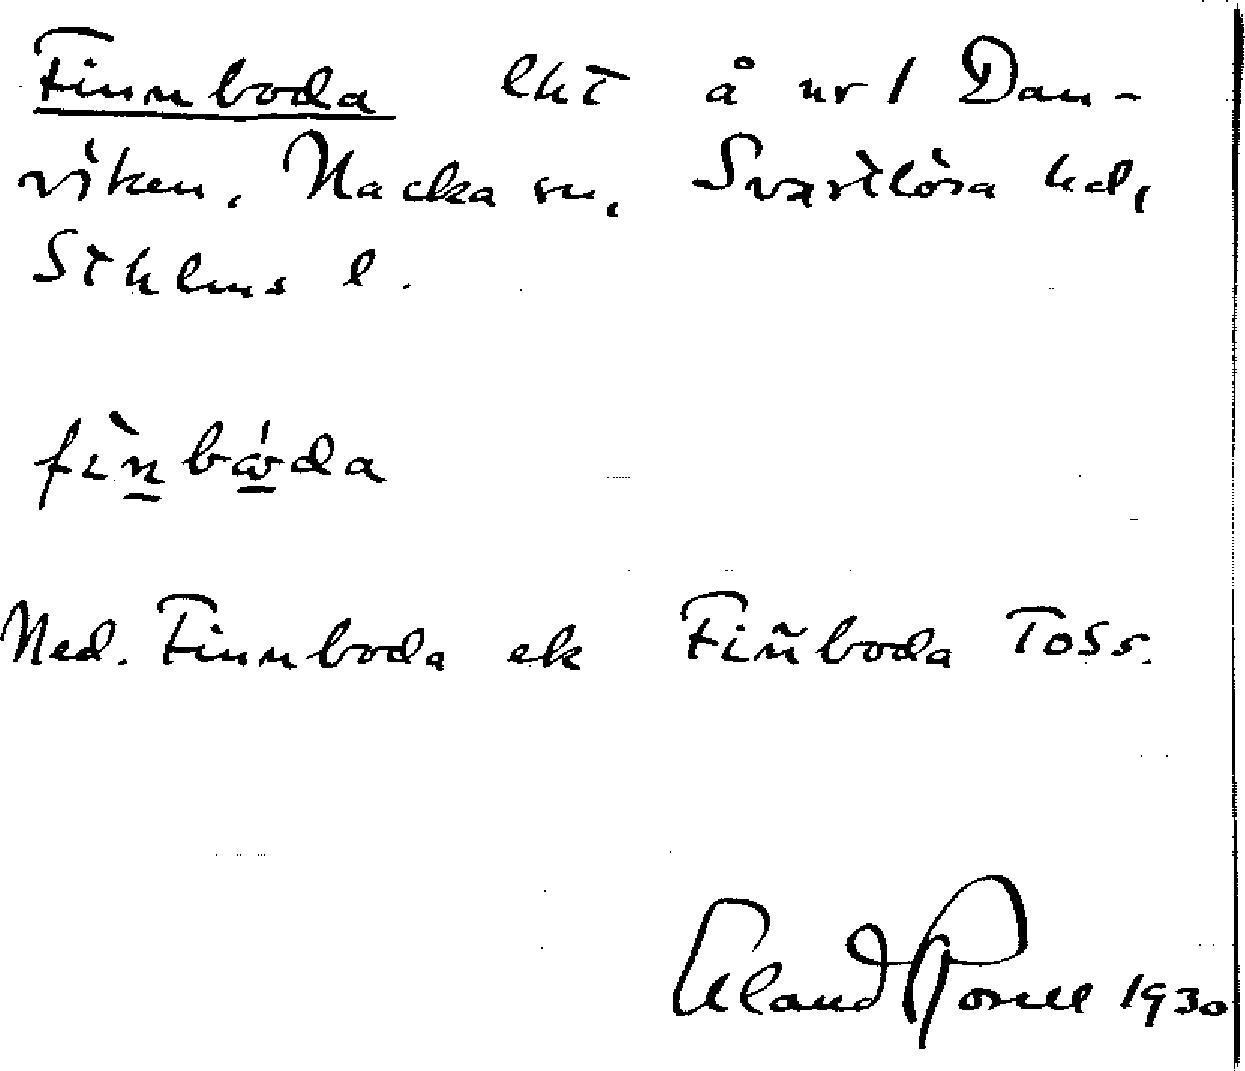 Finnboda lht å nr 1 Dan-
viken, Nacka sn,
Svartlösa hd,
Sthlms l.
fìnbǻda
Ned. Finnboda ek Fin̄boda Toss.
Åland Rosell 1930